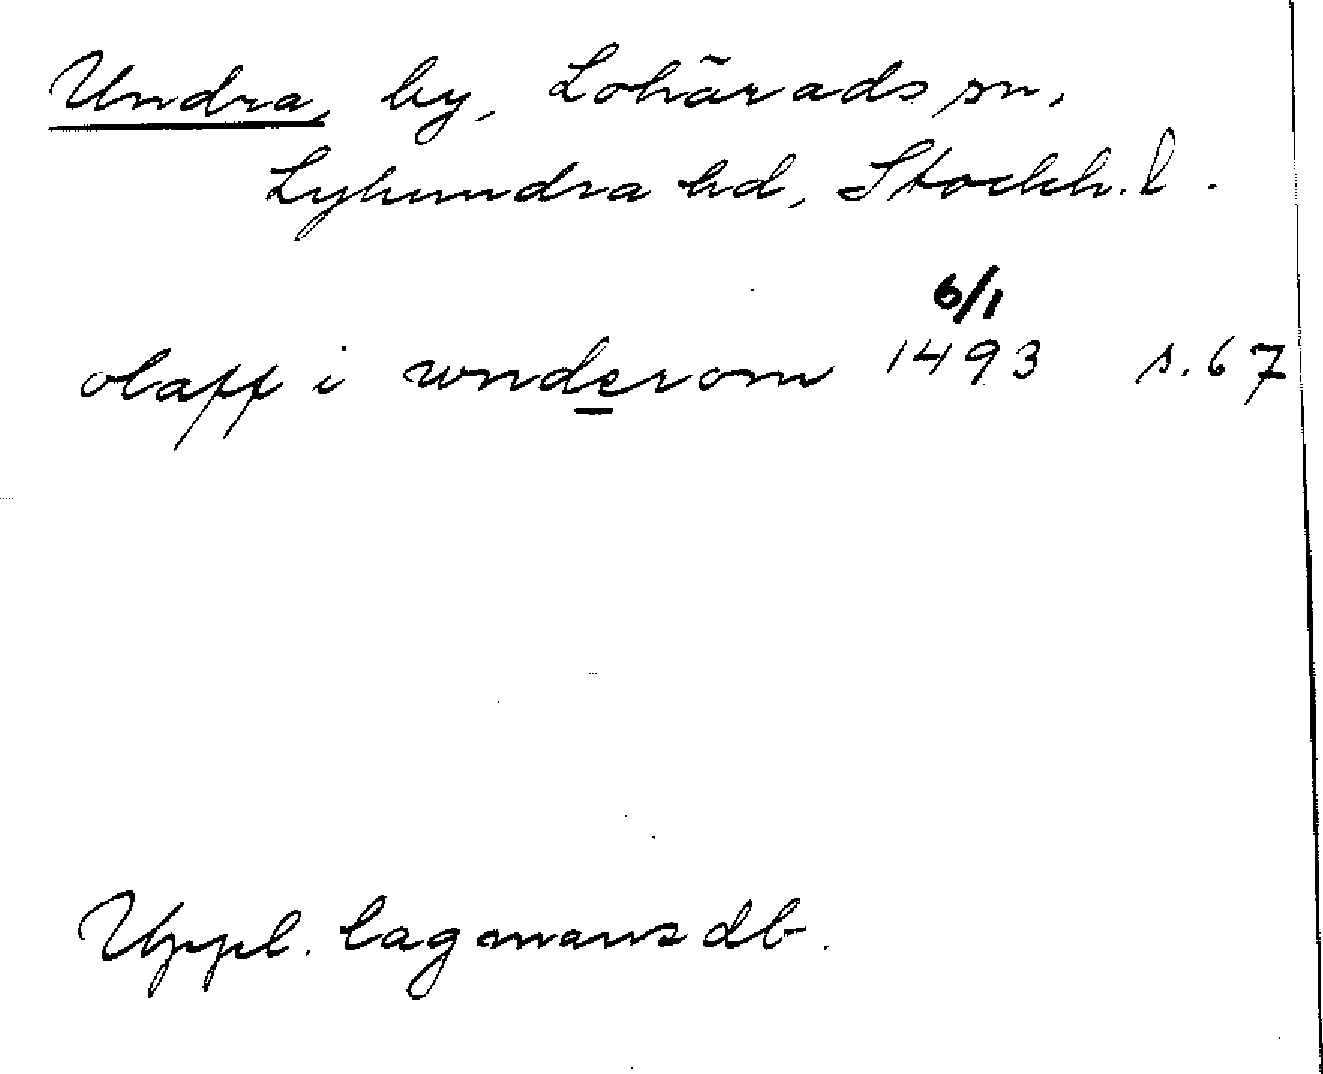 Undra, by, Lohärads sn.
Lyhundra hd, Stockh. l.
6/1
olaff i wnderom 1493 s. 67
Uppl. lagmansdb.